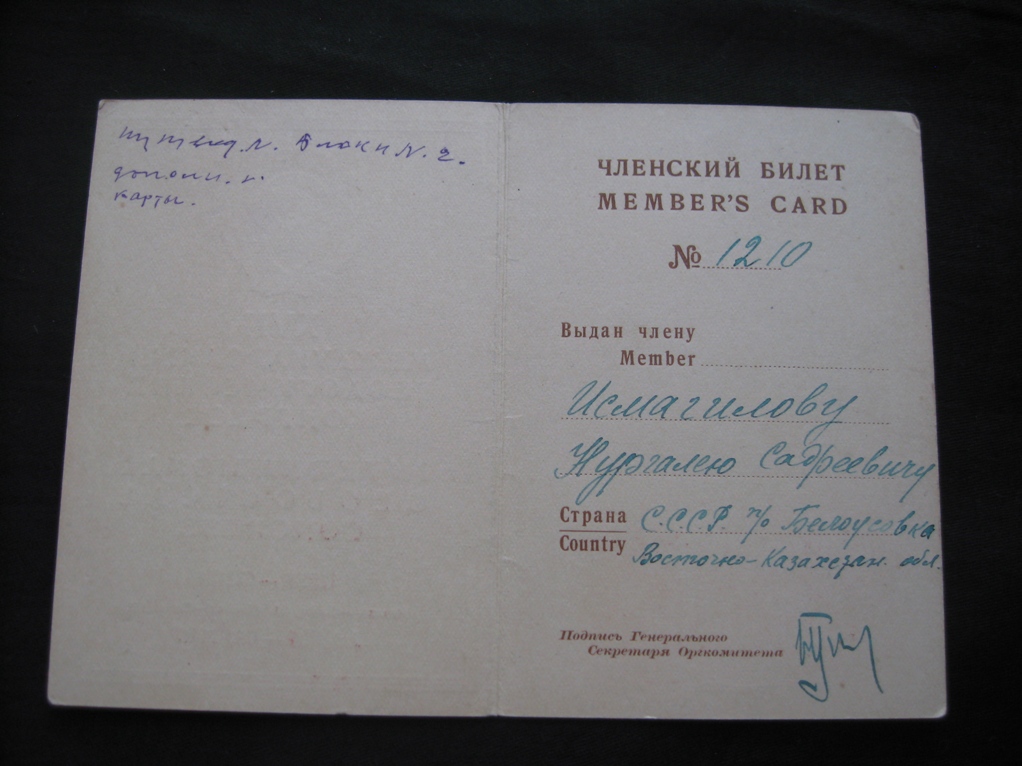 Блокн N. 2.
дополн. к.
карты.
ЧЛЕНСКИЙ БИЛЕТ
MEMBER'S CARD
№ 1210
Выдан члену
Member
Исмагилову
Нургалею Садреевичу
Страна С.С.С.Р. п/о Белоусовка
Country Восточно-Казахстан. обл.
Подпись Генерального
Секретаря Оргкомитета